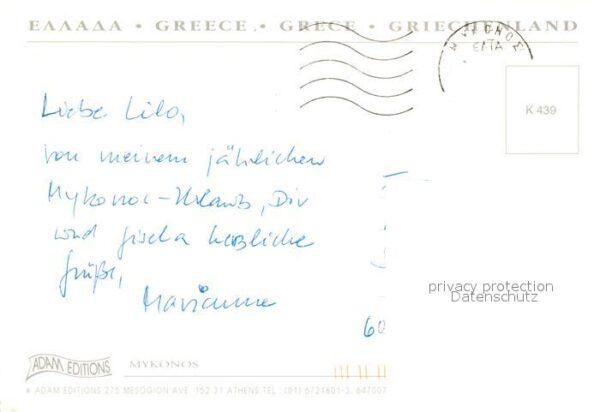 ΕΛΛΑΔΑ • GREECE • GRECE • GRIECHENLAND
ΕΛΤΑ
K 439
Liebe Lilo,
von meinem jährlichen
Mykonos-Urlaub, Dir
und Gisela herzliche
Grüße,
Marianne
privacy protection
Datenschutz
60
ADAM EDITIONS
MYKONOS
ADAM EDITIONS 275 MESOGION AVE. 152 31 ATHENS TEL.: (01) 6721801-3, 647007